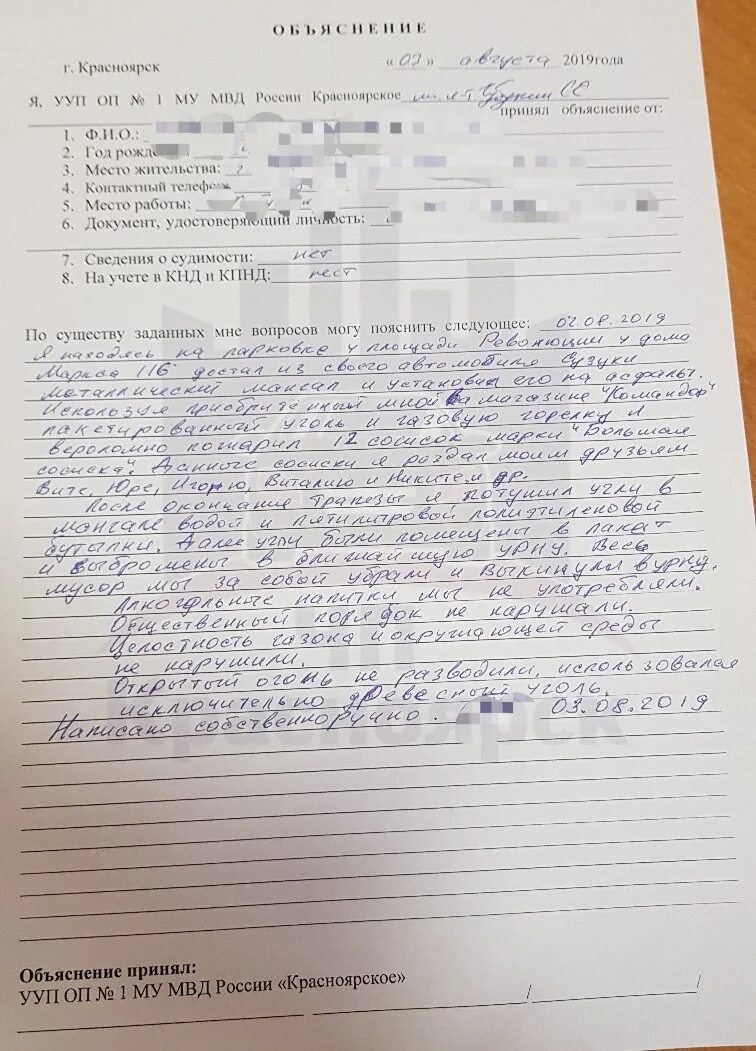 ОБЪЯСНЕНИЕ
г. Красноярск «03» августа 2019года
Я, УУП ОП № 1 МУ МВД России Красноярское
принял объяснение от:
1. Ф.И.О.:
2. Год рожд
3. Место жительства:
4. Контактный телеф
5. Место работы:
6. Документ, удостоверяющий личность:
7. Сведения о судимости: нет
8. На учете в КНД и КПНД:
По существу заданных мне вопросов могу пояснить следующее: 02.08.2019
Я находясь на парковке у площади Революции у дома
Маркса 116 достал из своего автомобиля Сузуки
металлический мангал и установил его на асфальт.
Используя приобритенный мной в магазине "Командор"
пакетированный уголь и газовую горелку я
вероломно пожарил 12 сосисок марки "Большая
сосиска". Данные сосиски я раздал моим друзьям
Вите, Юре, Игорю, Виталию и Никите и др.
После окончания трапезы я потушил угли в
мангале водой и пятилитровой полиэтиленовой
бутылки. Далее угли были помещены в пакет
и выброшены в ближайшую урну. Весь
мусор мы за собой убрали и выкинули в урну.
Алкогольные напитки мы не употребляли.
Общественный порядок не нарушали.
Целостность газона и окружающей среды
не нарушили.
Открытый огонь не разводили, использовался
исключительно древесный уголь.
Написано собственноручно. 03.08.2019
Красноярск
Объяснение принял:
УУП ОП № 1 МУ МВД России «Красноярское»